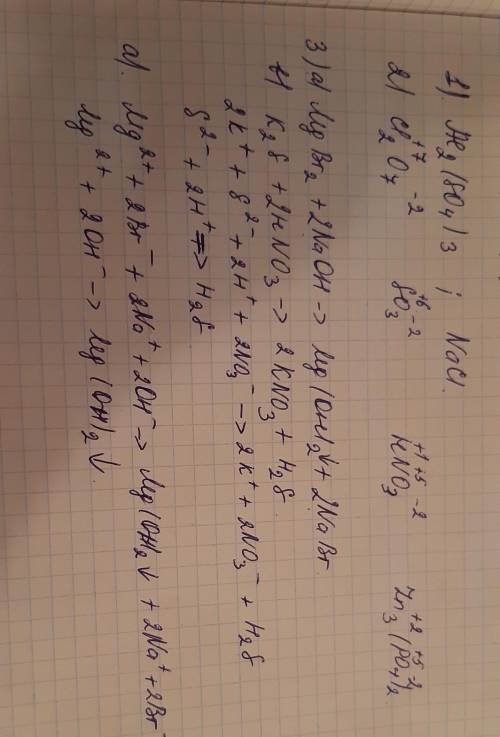 1). Al2(SO4)3 ; NaCl.
2) Cl2+7O7-2 S+6O3-2 H+1N+5O3-2 Zn3+2(P+5O4-2)2
3) a) MgBr2 + 2NaOH -> Mg(OH)2↓ + 2NaBr.
в) K2S + 2HNO3 -> 2KNO3 + H2S.
2K+ + S2- + 2H+ + 2NO3- -> 2K+ + 2NO3- + H2S
S2- + 2H+ => H2S
a). Mg2+ + 2Br- + 2Na+ + 2OH- -> Mg(OH)2↓ + 2Na+ + 2Br-
Mg2+ + 2OH- -> Mg(OH)2↓.